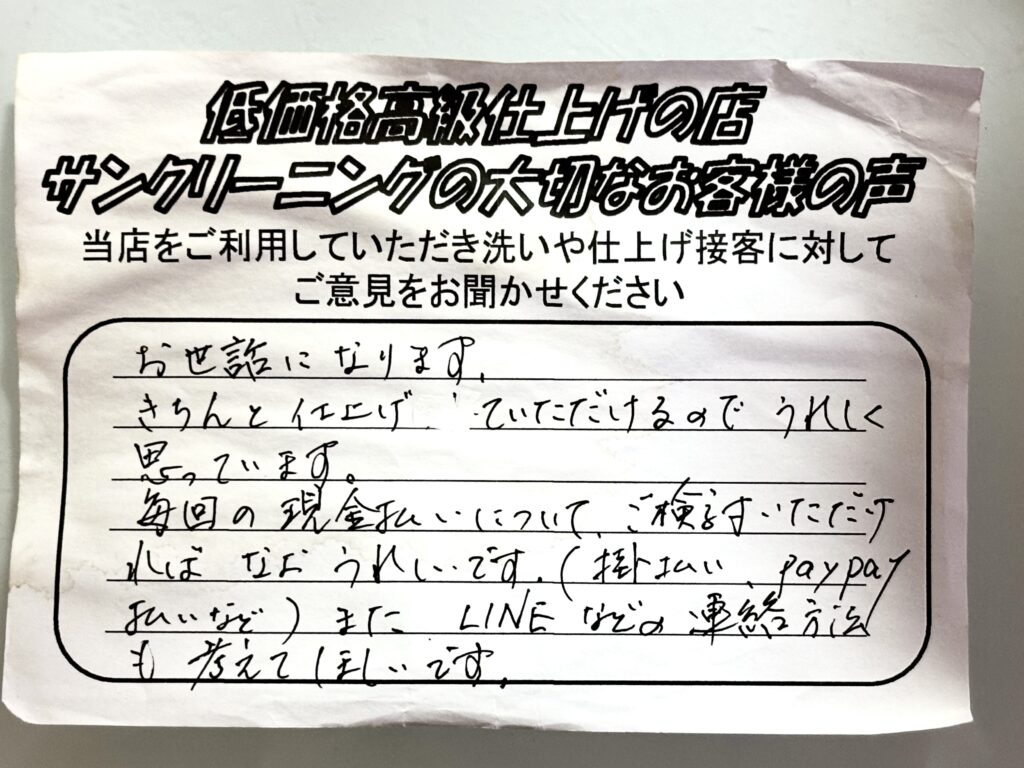 低価格高級仕上げの店
サンクリーニングの大切なお客様の声
当店をご利用していただき洗いや仕上げ接客に対して
ご意見をお聞かせください
お世話になります。
きちんと仕上げ ていただけるのでうれしく
思っています。
毎回の現金払いについて、ご検討いただけ
ればなおうれしいです。(掛払い、paypay
払いなど)また LINEなどの連絡方法
も考えてほしいです。